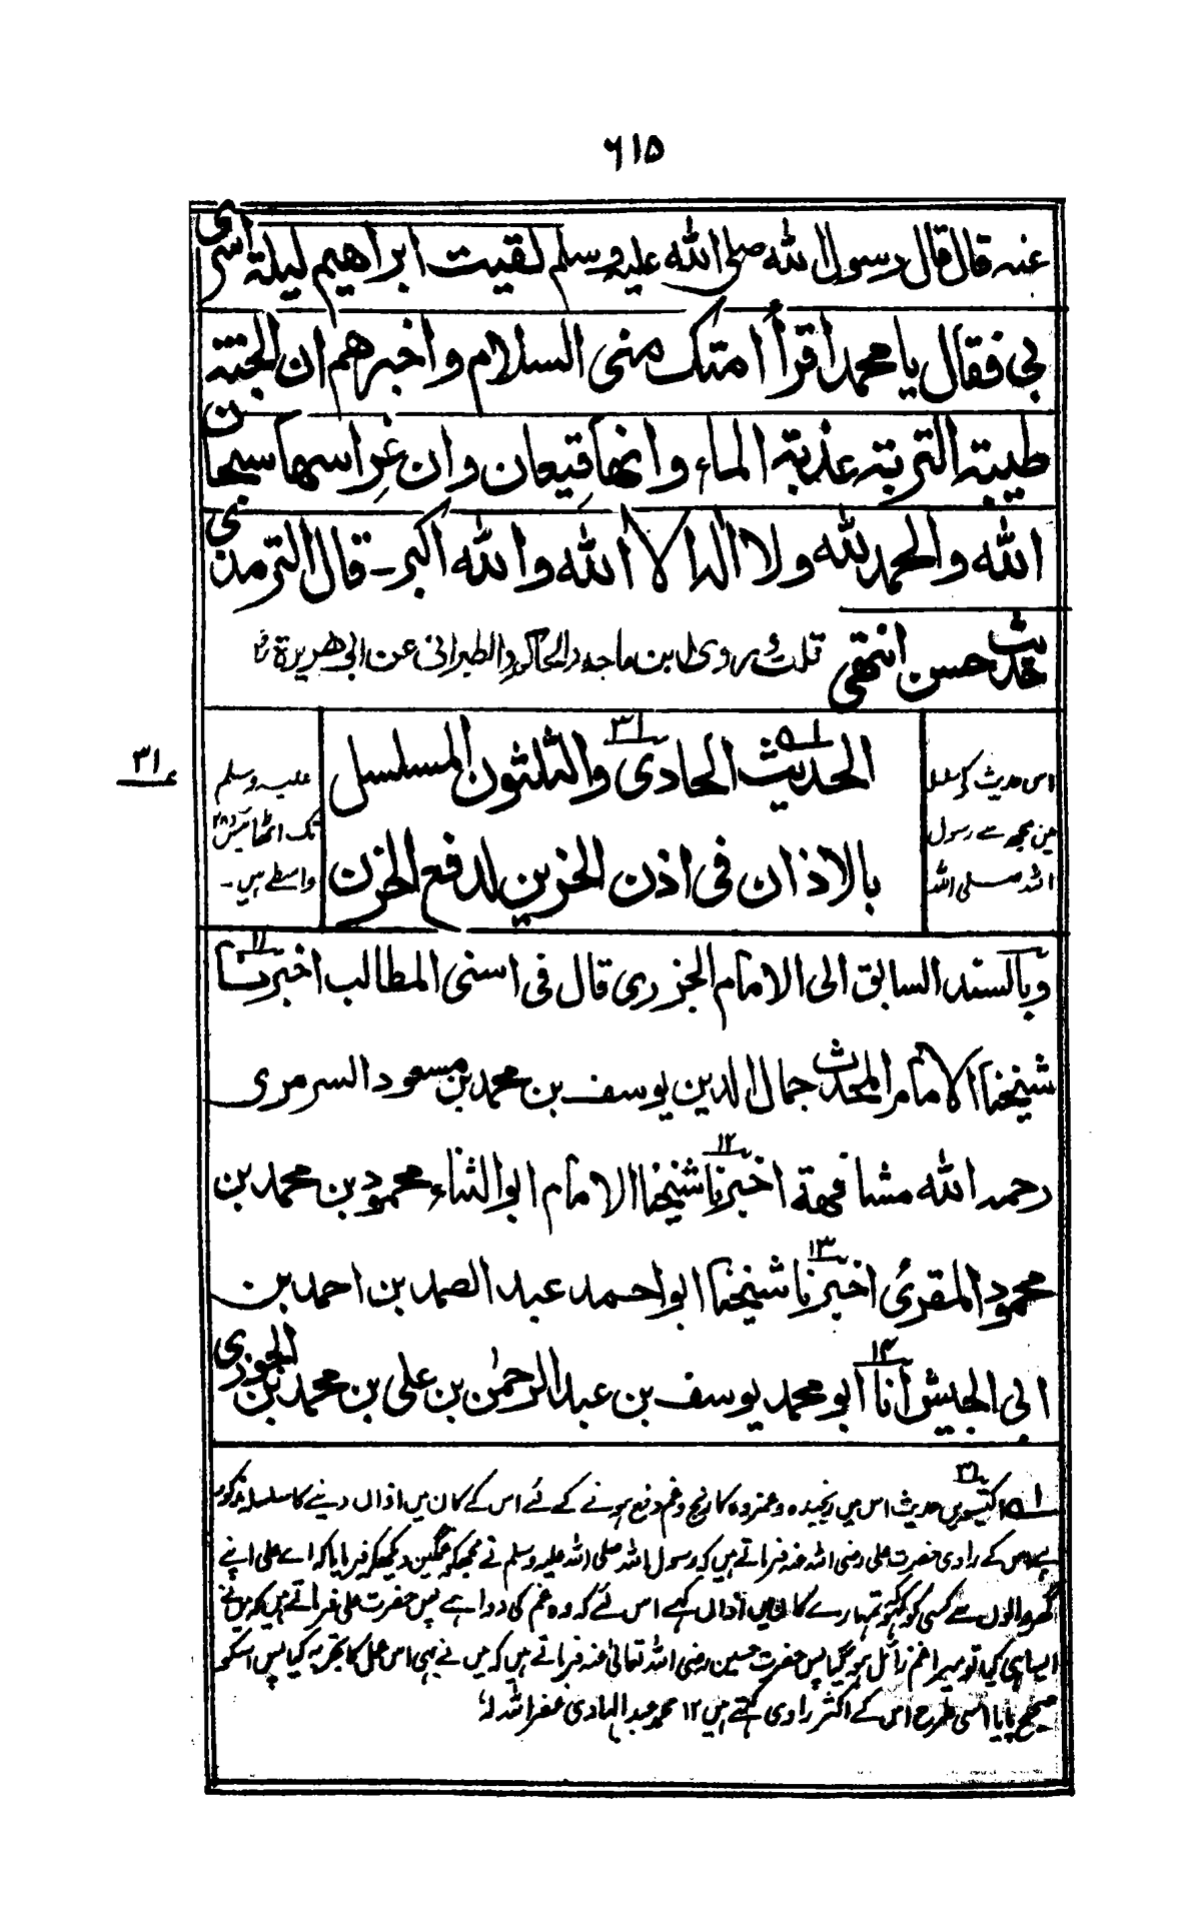 ٦١٥
عنہ قال قال رسول اللہ صلی اللہ علیہ وسلم لقیت ابراھیم لیلۃ اسری
بی فقال یا محمد اقرأ امتک منی السلام واخبرھم ان الجنۃ
طیبۃ التربۃ عذبۃ الماء وانھا قیعان وان غراسھا سبحان
اللہ والحمد للہ ولا الہ الا اللہ واللہ اکبر۔ قال الترمذی
حدیث حسن انتھی قلت وروی ابن ماجہ والحاکم والطبرانی عن ابی ھریرۃ
٣١
اس حدیث کے سلسلہ
میں مجھ سے رسول
اللہ صلی اللہ
علیہ وسلم
تک اٹھائیس ٢٨
واسطے ہیں۔
الحدیث الحادی والثلثون المسلسل
بالاذان فی اذن الحزین لدفع الحزن
وبالسند السابق الی الامام الجزری قال فی اسنی المطالب اخبرنا ١١
شیخنا الامام المحدث جمال الدین یوسف بن محمد بن مسعود السرمری
رحمہ اللہ مشافھۃ اخبرنا ١٢ شیخنا الامام ابو الثناء محمود بن محمد بن
محمود المقرئ اخبرنا ١٣ شیخنا ابو احمد عبد الصمد بن احمد بن
ابی الجیش انا ١٤ ابو محمد یوسف بن عبد الرحمٰن بن علی بن محمد بن الجوزی
اکتیسویں حدیث اس میں رنجیدہ وغمزدہ کا رنج وغم دفع ہونے کے لئے اس کے کان میں اذاں دینے کا سلسلہ مذکور
ہے اس کے راوی حضرت علی رضی اللہ عنہ فرماتے ہیں کہ رسول اللہ صلی اللہ علیہ وسلم نے مجھکو غمگین دیکھکر فرمایا کہ اے علی اپنے
گھر والوں سے کسی کو کہو تمہارے کان میں اذاں کہے اس لئے کہ وہ غم کی دوا ہے پس حضرت علی فرماتے ہیں کہ میں نے
ایسا ہی کیا تو میرا غم زائل ہو گیا پس حضرت حسین رضی اللہ تعالیٰ عنہ فرماتے ہیں کہ میں نے بھی اس عمل کا تجربہ کیا پس اسکو
صحیح پایا اسی طرح اس کے اکثر راوی کہتے ہیں ١٢ محمد عبد الہادی غفر اللہ لہٗ